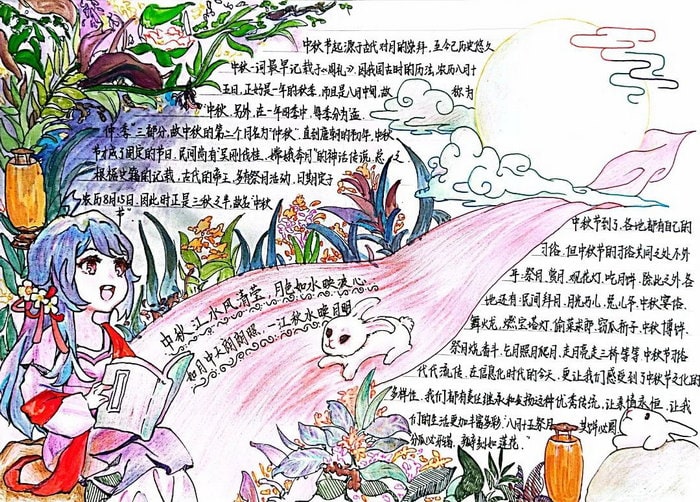 中秋节起源于古代对月的崇拜，至今已历史悠久
中秋一词最早记载于《周礼》。因我国古时的历法，农历八月十
五日，正好是一年的秋季，而且是八月中间，故 称为
中秋。另外，在一年四季中，每季分为孟
仲 季 三部分，故中秋的第二个月名为"仲秋"，直到唐朝的初年，中秋
节才成了固定的节日。民间尚有"吴刚伐桂，嫦娥奔月"的神话传说，总之
根据史籍的记载，古代的帝王，多能祭月活动，日期定于
农历8月15日，因此时正是三秋之半，故名"中秋
节"
中秋江水风清莹 月色如水映波心
如月中天朗朗照，一江秋水映月明
中秋节到了，各地都有自己的
习俗，但中秋节的习俗大同之处不外
乎：祭月，赏月，观花灯，吃月饼，除此之外各
地还有：民间拜月，月姚西儿，兔儿爷，中秋宴俗，
舞火龙，燃宝塔灯，偷菜求郎，窃瓜祈子，中秋博饼，
祭月烧斋斗，乞月照月爬月，走月亮走三桥等等 中秋节习俗
代代流传，在信息化时代的今天，更让我们感受到了中秋节文化的
多样性，我们都有责任继承和发扬这种优秀传统，让亲情永恒，让我
们的生活更加丰富多彩。"八月十五祭月， 其饼必圆，
分瓜必牙错，瓣刻如莲花。"